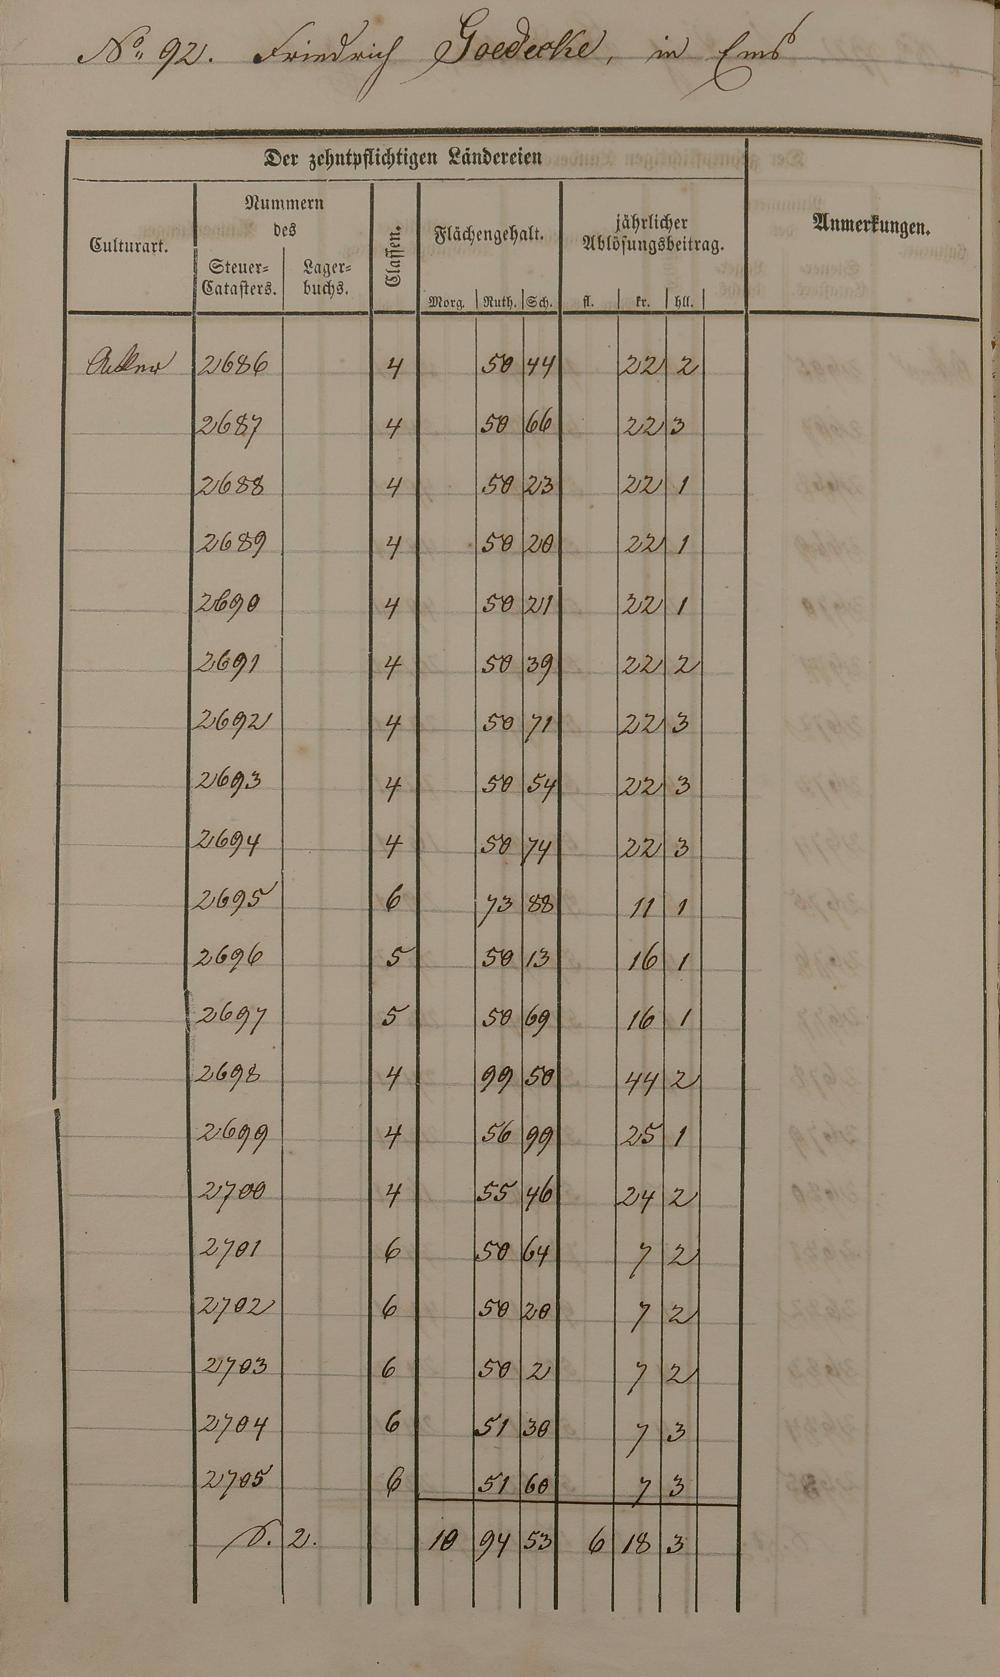 No. 92. Friedrich Goedecke, in Ems
Der zehntpflichtigen Ländereien
Anmerkungen.
Culturart.
Nummern
des
Steuer-
Catasters.
Lager-
buchs.
Classen.
Flächengehalt.
Morg. Ruth. Sch.
jährlicher
Ablösungsbeitrag.
fl. kr. hll.
Acker 2686 4 50 44 22 2
2687 4 50 66 22 3
2688 4 50 23 22 1
2689 4 50 20 22 1
2690 4 50 21 22 1
2691 4 50 39 22 2
2692 4 50 71 22 3
2693 4 50 54 22 3
2694 4 50 74 22 3
2695 6 73 88 11 1
2696 5 50 13 16 1
2697 5 50 69 16 1
2698 4 99 50 44 2
2699 4 56 99 25 1
2700 4 55 46 24 2
2701 6 50 64 7 2
2702 6 50 20 7 2
2703 6 50 2 7 2
2704 6 51 30 7 3
2705 6 51 60 7 3
S. 2. 10 94 53 6 18 3